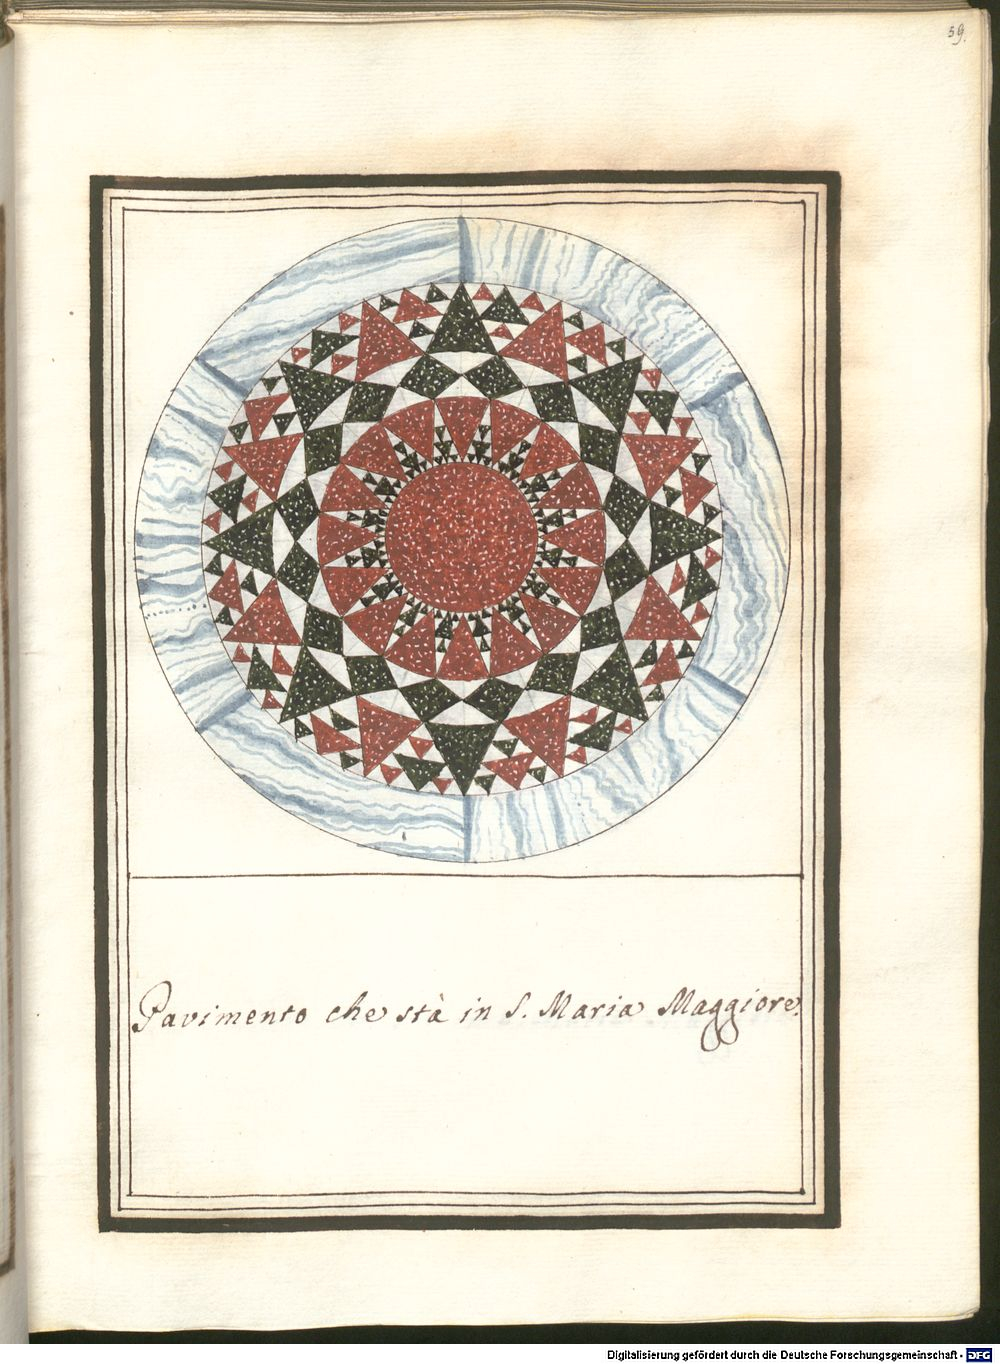 59.
Pavimento che stà in S. Maria Maggiore.
Digitalisierung gefördert durch die Deutsche Forschungsgemeinschaft - DFG